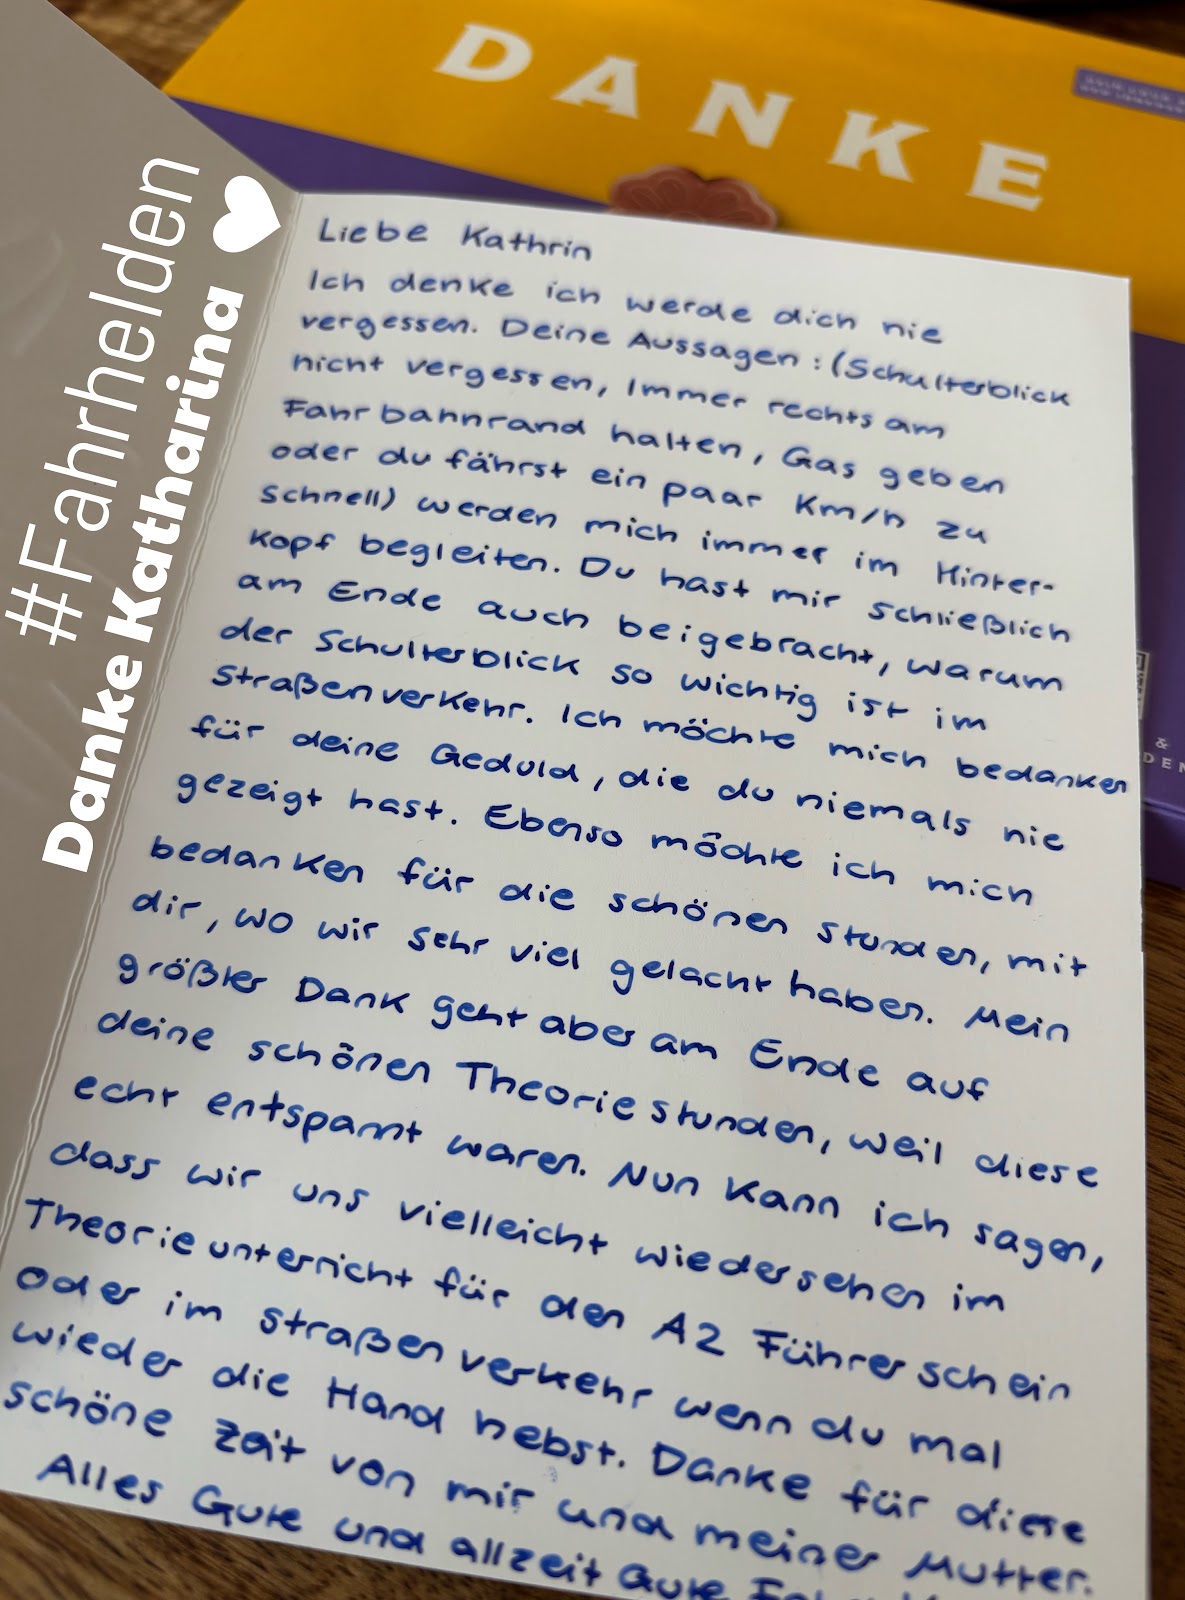 DANKE
#Fahrhelden
Danke Katharina
Liebe Kathrin
Ich denke ich werde dich nie
vergessen. Deine Aussagen: (Schulterblick
nicht vergessen, Immer rechts am
Fahrbahnrand halten, Gas geben
oder du fährst ein paar Km/h zu
schnell) werden mich immer im Hinter-
Kopf begleiten. Du hast mir schließlich
am Ende auch beigebracht, warum
der Schulterblick so wichtig ist im
Straßenverkehr. Ich möchte mich bedanken
für deine Geduld, die du niemals nie
gezeigt hast. Ebenso möchte ich mich
bedanken für die schönen stunden, mit
dir, wo wir sehr viel gelacht haben. Mein
größter Dank geht aber am Ende auf
deine schönen Theoriestunden, weil diese
echt entspannt waren. Nun Kann ich sagen,
dass wir uns vielleicht wiedersehen im
Theorieunterricht für den A2 Führerschein
Oder im straßenverkehr wenn du mal
wieder die Hand hebst. Danke für diese
schöne Zeit von mir und meiner Mutter.
Alles Gute und allzeit Gute
&
DEN